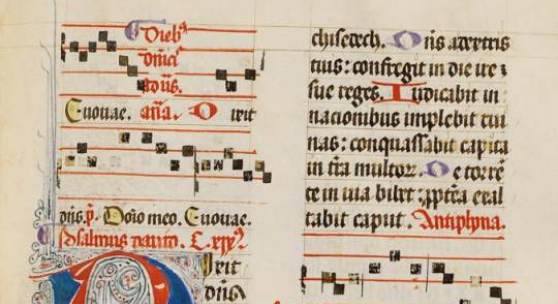 Dieb⁹
dn̄icꝭ
ad ūs.
Euouae. an̄a. Dixit
dn̄s. p̄. Dn̄o meo. Euouae.
Psalmus dauid. C.xix⁰.
Dixit
dn̄s
chisedech. Dn̄s a dextris
tuis: confregit in die ire
sue reges. Iudicabit in
nacionibus implebit rui
nas: conquassabit capita
in tr̄a multoꝝ. De torrē
te in uia bibet: ꝓpt̄ea exal
tabit caput. Antiphona.